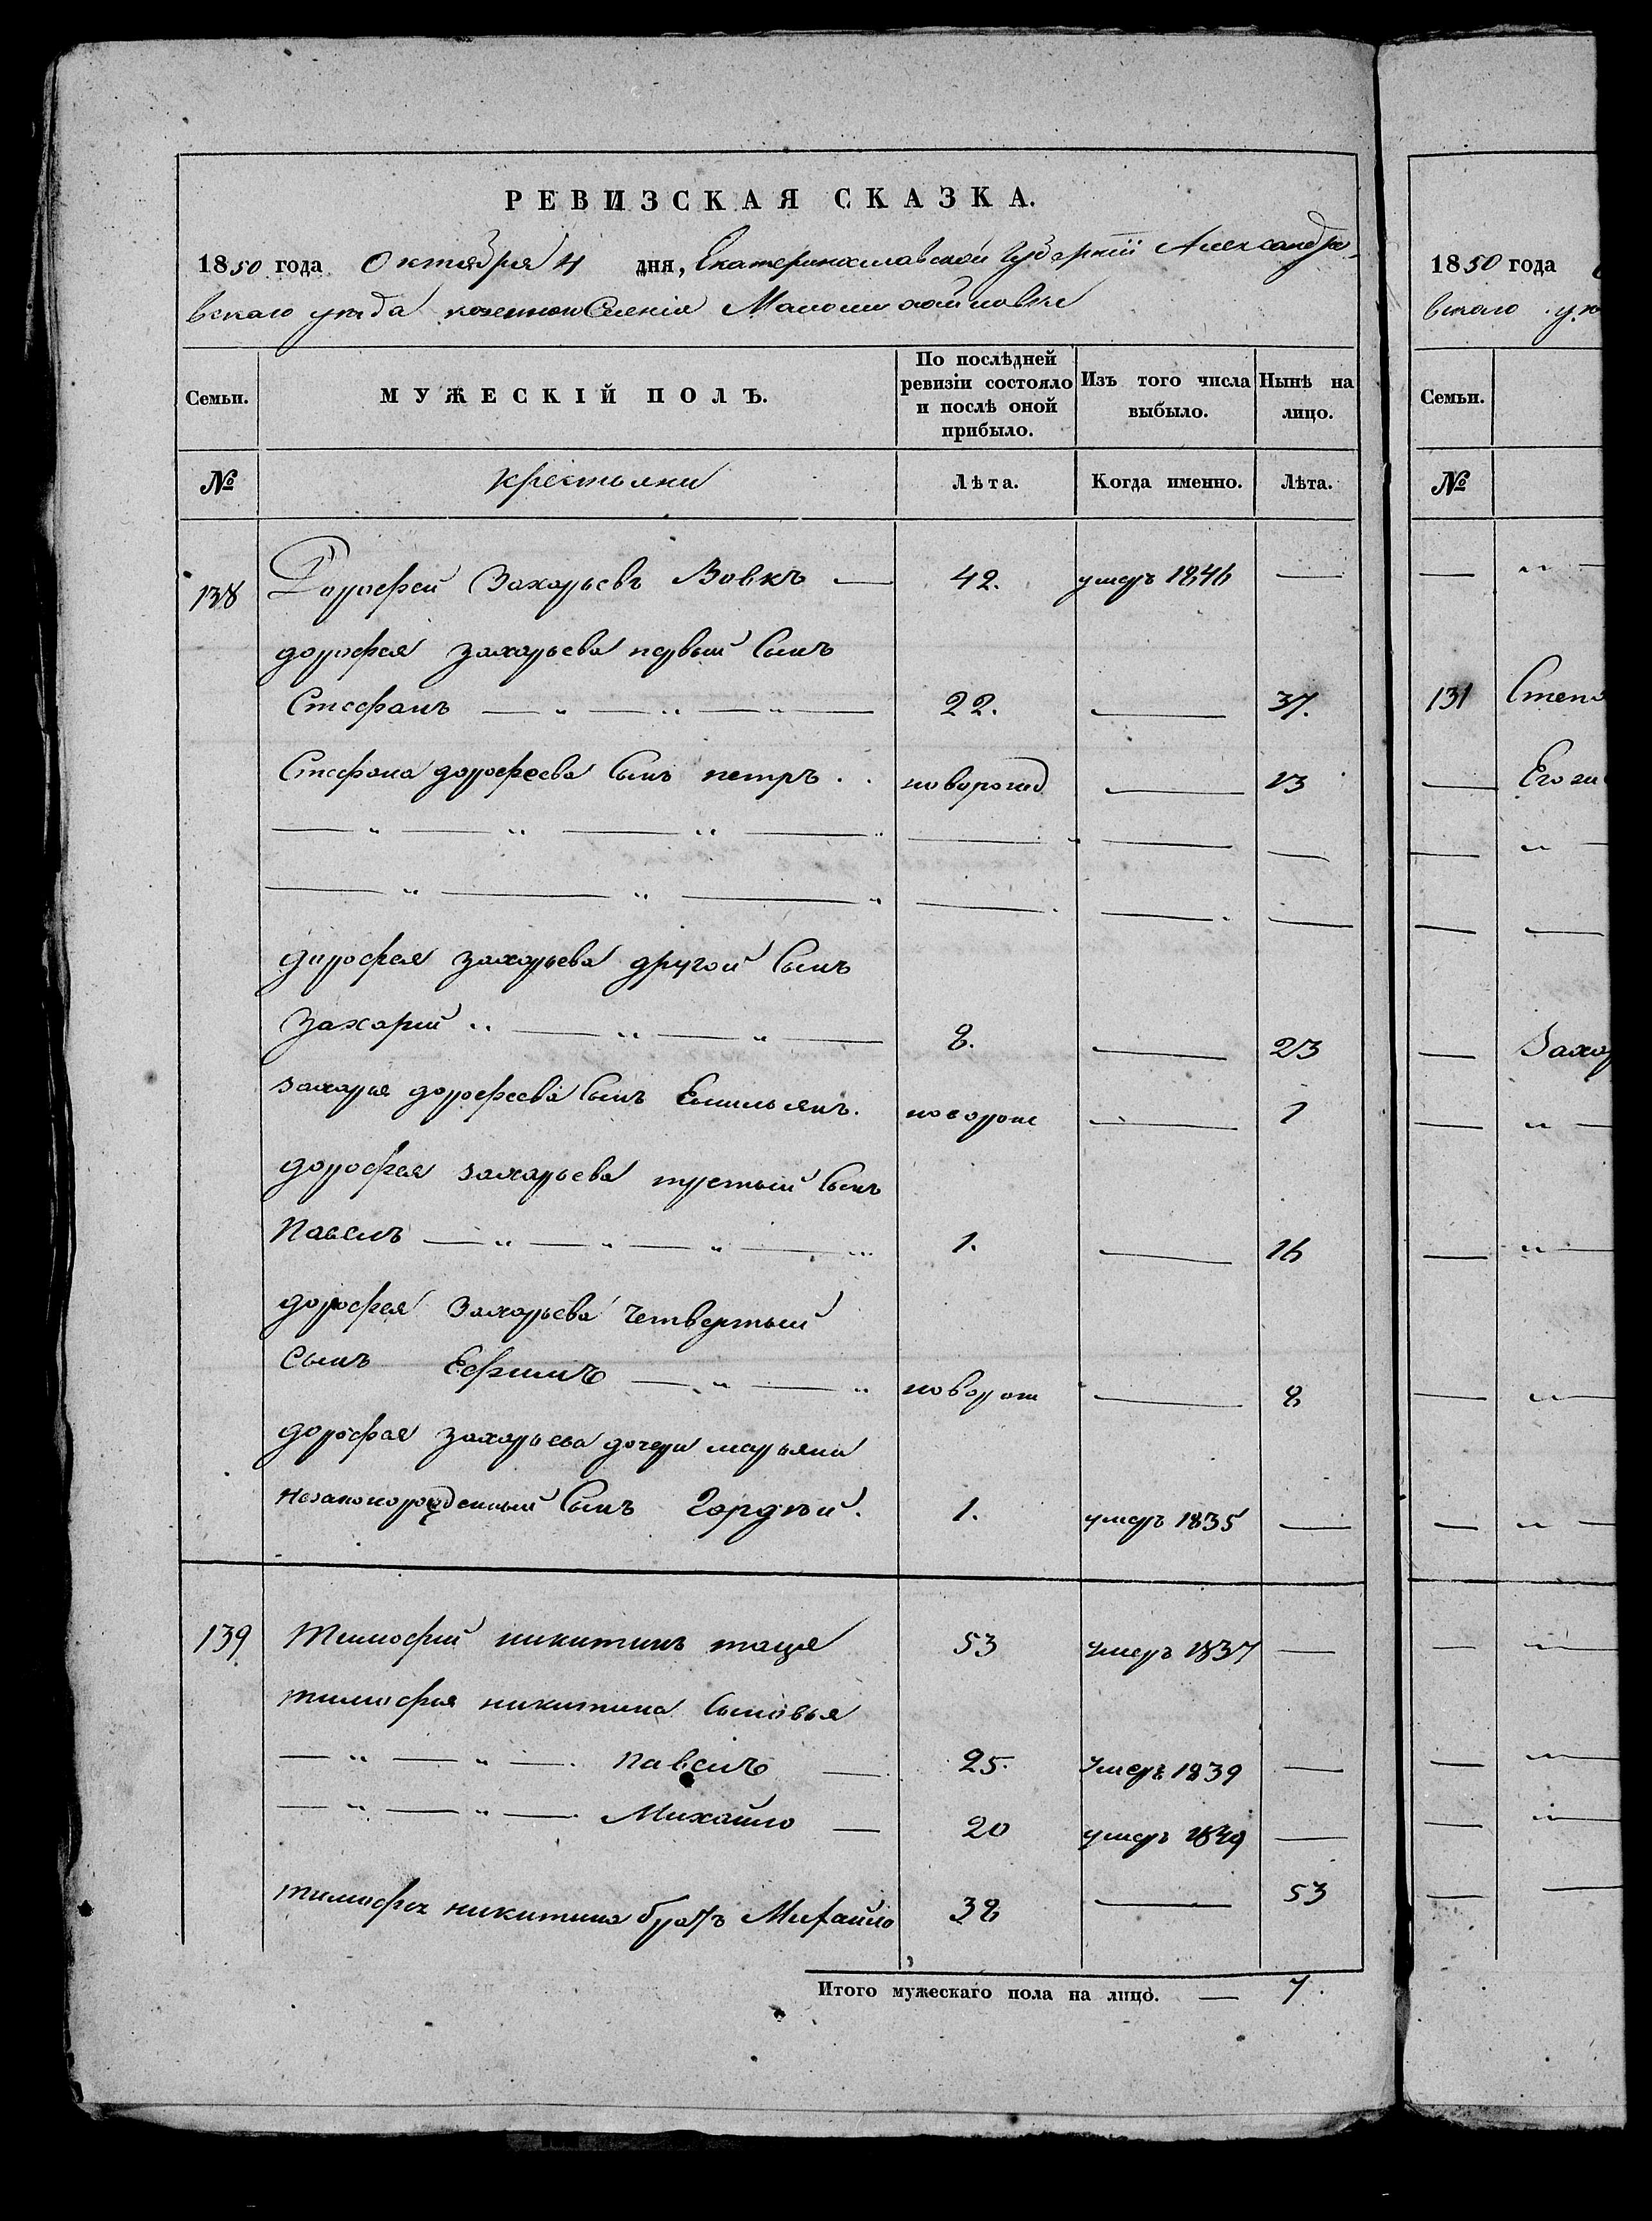 РЕВИЗСКАЯ СКАЗКА.
1850 года Октября 4 дня, Екатеринославской Губернии Александро-
вскаго уезда казенного Селенія Маломихайловки
Семьи. МУЖЕСКІЙ ПОЛЪ. По послѣдней ревизіи состояло и послѣ оной прибыло. Изъ того числа выбыло. Нынѣ на лицо.
№ крестьяни Лѣта. Когда именно. Лѣта.
138 Дорофей Захарьевъ Вовкъ — 42. умеръ 1846 —
дорофея захарьева первый Сынъ
Стефанъ — „ — „ — „ — 22. — 37.
Стефана дорофеева Сынъ петръ . . новорожд — 13
— „ — „ — „ — „ — „ — —
— „ — „ — „ — . — . —
дорофея захарьева другой Сынъ
Захарий „ — „ — „ — 8. — 23
захарья дорофеева Сынъ Емильянъ. новорож — 1
дорофея захарьева третьий Сынъ
Павелъ — „ — „ — „ — „ 1. — 16
дорофея Захарьева Четвертый
Сынъ Ефимъ — „ — „ новорож — 8
дорофея захарьева дочери марьяни
незаконорожденный Сынъ Гордѣй. 1. умеръ 1835 —
139 Тимофий никитинъ таця 53 умеръ 1837 —
тимофея никитина Сыновья
— „ — „ — . павелъ — 25. умеръ 1839 —
— „ — „ — . Михайло — 20 умеръ 1849 —
тимофея никитина братъ Михайло 38 — 53
Итого мужескаго пола на лицо. — 7.
1850 года
вскаго
Семьи.
№
131